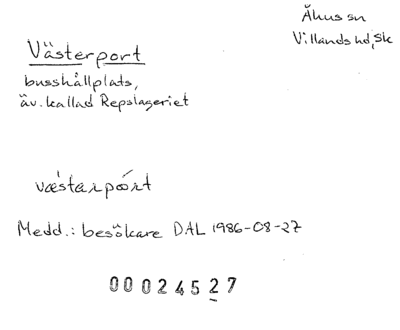 Åhus sn
Villands hd, Sk
Västerport
busshållplats,
äv. kallad Repslageriet
væ̀starpórt
Medd.: besökare DAL 1986-08-27
00024527